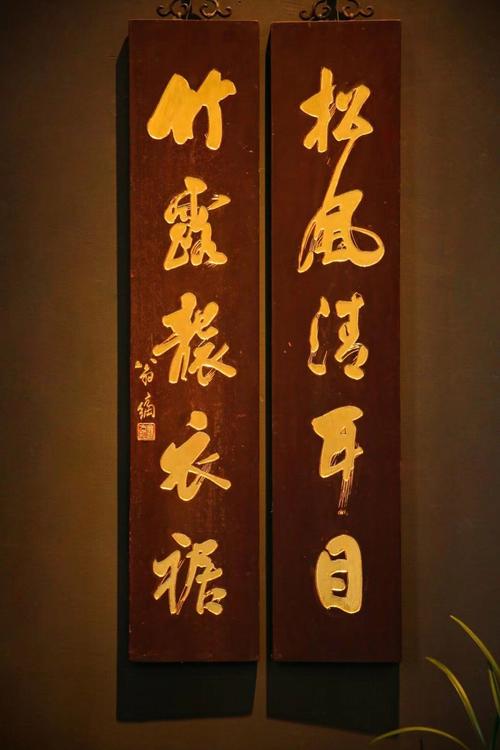 松風清耳目
竹露襲衣裾